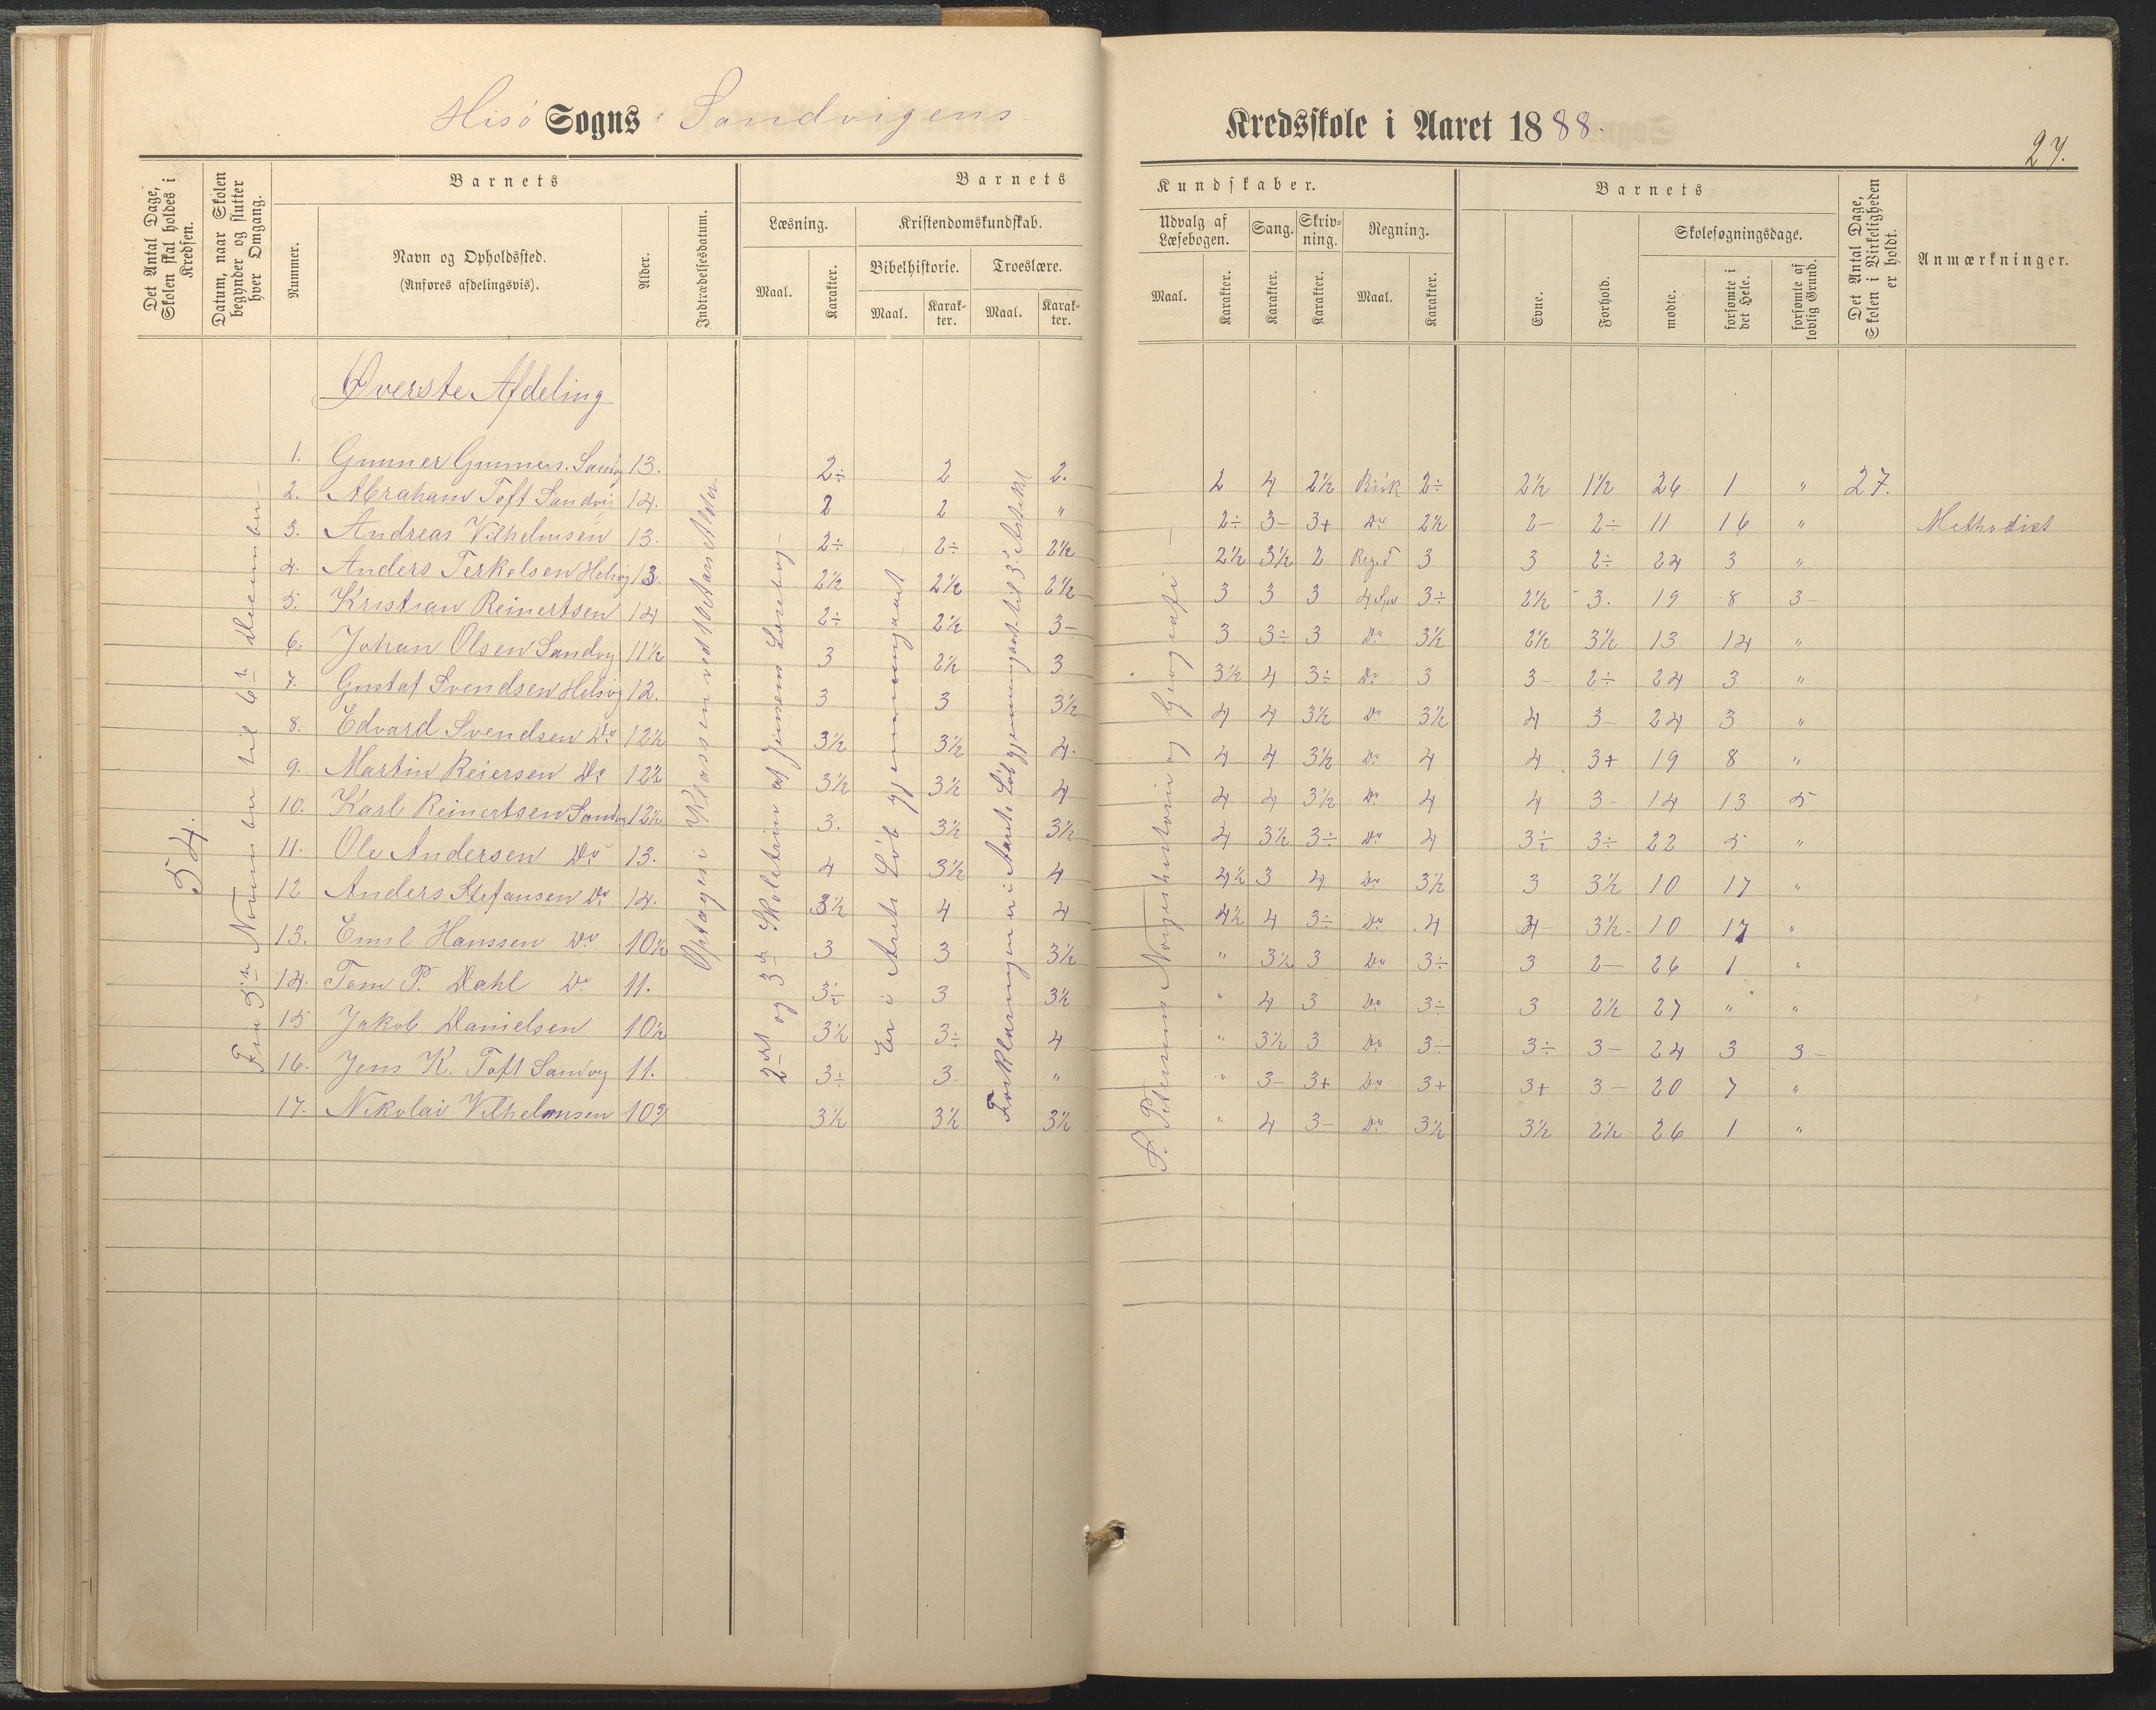 Hisö Sogns Sandvigens
Kredsskole i Aaret 1888.
27.
Det Antal Dage, Skolen skal holdes i Kredsen.
Datum, naar Skolen begynder og slutter hver Omgang.
Barnets
Nummer.
Navn og Opholdssted.
(Anføres afdelingsvis).
Alder.
Indtrædelsesdatum.
Barnets
Læsning.
Maal.
Karakter.
Kristendomskundskab.
Bibelhistorie.
Maal.
Karakter.
Troeslære.
Maal.
Karakter.
Kundskaber.
Udvalg af Læsebogen.
Maal.
Karakter.
Sang.
Karakter.
Skrivning.
Karakter.
Regning.
Maal.
Karakter.
Barnets
Evne.
Forhold.
Skolesøgningsdage.
mødte.
forsømte i det Hele.
forsømte af lovlig Grund.
Det Antal Dage, Skolen i Virkeligheden er holdt.
Anmærkninger.
Øverste Afdeling
54.
Fra 5te November til 6te December
Optages i Klassen ved 10 Aars Alder
2det og 3die Skoletrin af Jensens Læsebog
Er i Arets Löb gjennemgaaet
Forklaringen er i Aarets Löb gjennemgaaet til 3die Artikel
S. Petersens Norgeshistorie og Geografi
1. Gunner Gunners. Sandvg 13. 2÷ 2 2. 2 4 2½ Brök 2÷ 2½ 1½ 26 1 " 27.
2. Abraham Toft Sandvig 14. 2 2 " 2÷ 3- 3+ Do 2½ 2- 2÷ 11 16 " Methodist
3. Andreas Vilhelmsen 13. 2÷ 2÷ 2½ 2½ 3½ 2 Reg.d 3 3 2÷ 24 3 "
4. Anders Terkelsen Helsvig 13. 2½ 2½ 2½ 3 3 3 4 Spe 3÷ 2½ 3. 19 8 3-
5. Kristian Reinertsen 14 2÷ 2½ 3- 3 3÷ 3 Do 3½ 2½ 3½ 13 14 "
6. Johan Olsen Sandvg 11½ 3 2½ 3 3½ 4 3÷ Do 3 3- 2÷ 24 3 "
7. Gustaf Svendsen Helsvig 12. 3 3 3½ 4 4 3½ Do 3½ 4 3- 24 3 "
8. Edvard Svendsen Do 12½ 3½ 3½ 4. 4 4 3½ Do 4 4 3+ 19 8 "
9. Martin Reiersen Do 12½ 3½ 3½ 4 4 4 3½ Do 4 4 3- 14 13 5
10. Karl Reinertsen Sandvg 12½ 3. 3½ 3½ 4 3½ 3÷ Do 4 3÷ 3÷ 22 5 "
11. Ole Andersen Do 13. 4 3½ 4 4½ 3 4 Do 3½ 3 3½ 10 17 "
12 Anders Stefansen Do 14. 3½ 4 4 4½ 4 3÷ Do 4 4- 3½- 10 17 "
13. Emil Hanssen Do 10½ 3 3 3½ " 3½ 3 Do 3÷ 3 2- 26 1 "
14. Tom P. Dahl Do 11. 3÷ 3 3½ " 4 3 Do 3÷ 3 2½ 27 " "
15 Jakob Danielsen 10½ 3½ 3÷ 4 " 3½ 3 Do 3- 3÷ 3- 24 3 3-
16. Jens K. Toft Sandvg 11. 3÷ 3- " " 3- 3+ Do 3+ 3+ 3- 20 7 "
17. Nikolai Vilhelmsen 10¾ 3½ 3½ 3½ " 4 3- Do 3½ 3½ 2½ 26 1 "